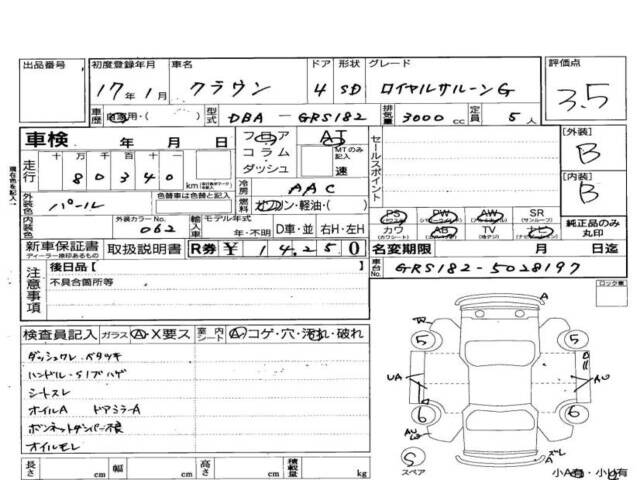 出品番号 初度登録年月 車名 ドア 形状 グレード 評価点
17年1月 クラウン 4 SD ロイヤルサルーンG 3.5
車歴 自家用・( ) 型式 DBA-GRS182 排気量 3000cc 定員 5人
車検 年 月 日 フロア AT
コラム MTのみ記入
ダッシュ 速
セールスポイント
[外装] B
[内装] B
現在色を記入
走行 十万千百十一
80340 km
冷房 AAC
外装色 パール 色替車は色替と記入
燃料 ガソリン・軽油・( )
内装色 外装カラーNo. 062 輸入車 モデル年式 年・不明 D車・並 右H・左H
PS PW AW SR (サンルーフ)
カワ (カワシート) AB TV (地デジ) ナビ
純正品のみ丸印
新車保証書 ディーラー捺印あるもの 取扱説明書 R券 ¥14,250
名変期限 月 日迄
注意事項 後日品[ ]
不具合箇所等
車台No. GRS182-5028197
ロック車
検査員記入 ガラス A・X要ス 室内シート A コゲ・穴・汚れ・破れ
ダッシュワレ・ベタツキ
ハンドル・S1ブハゲ
シートスレ
オイルA ドアミラーA
ボンネットダンパー不良
オイルモレ
A
5 5
UA AU
6 6
S スペア
A ズレ
小A有・小U有
長さ cm 幅 cm 高さ cm 積載量 kg